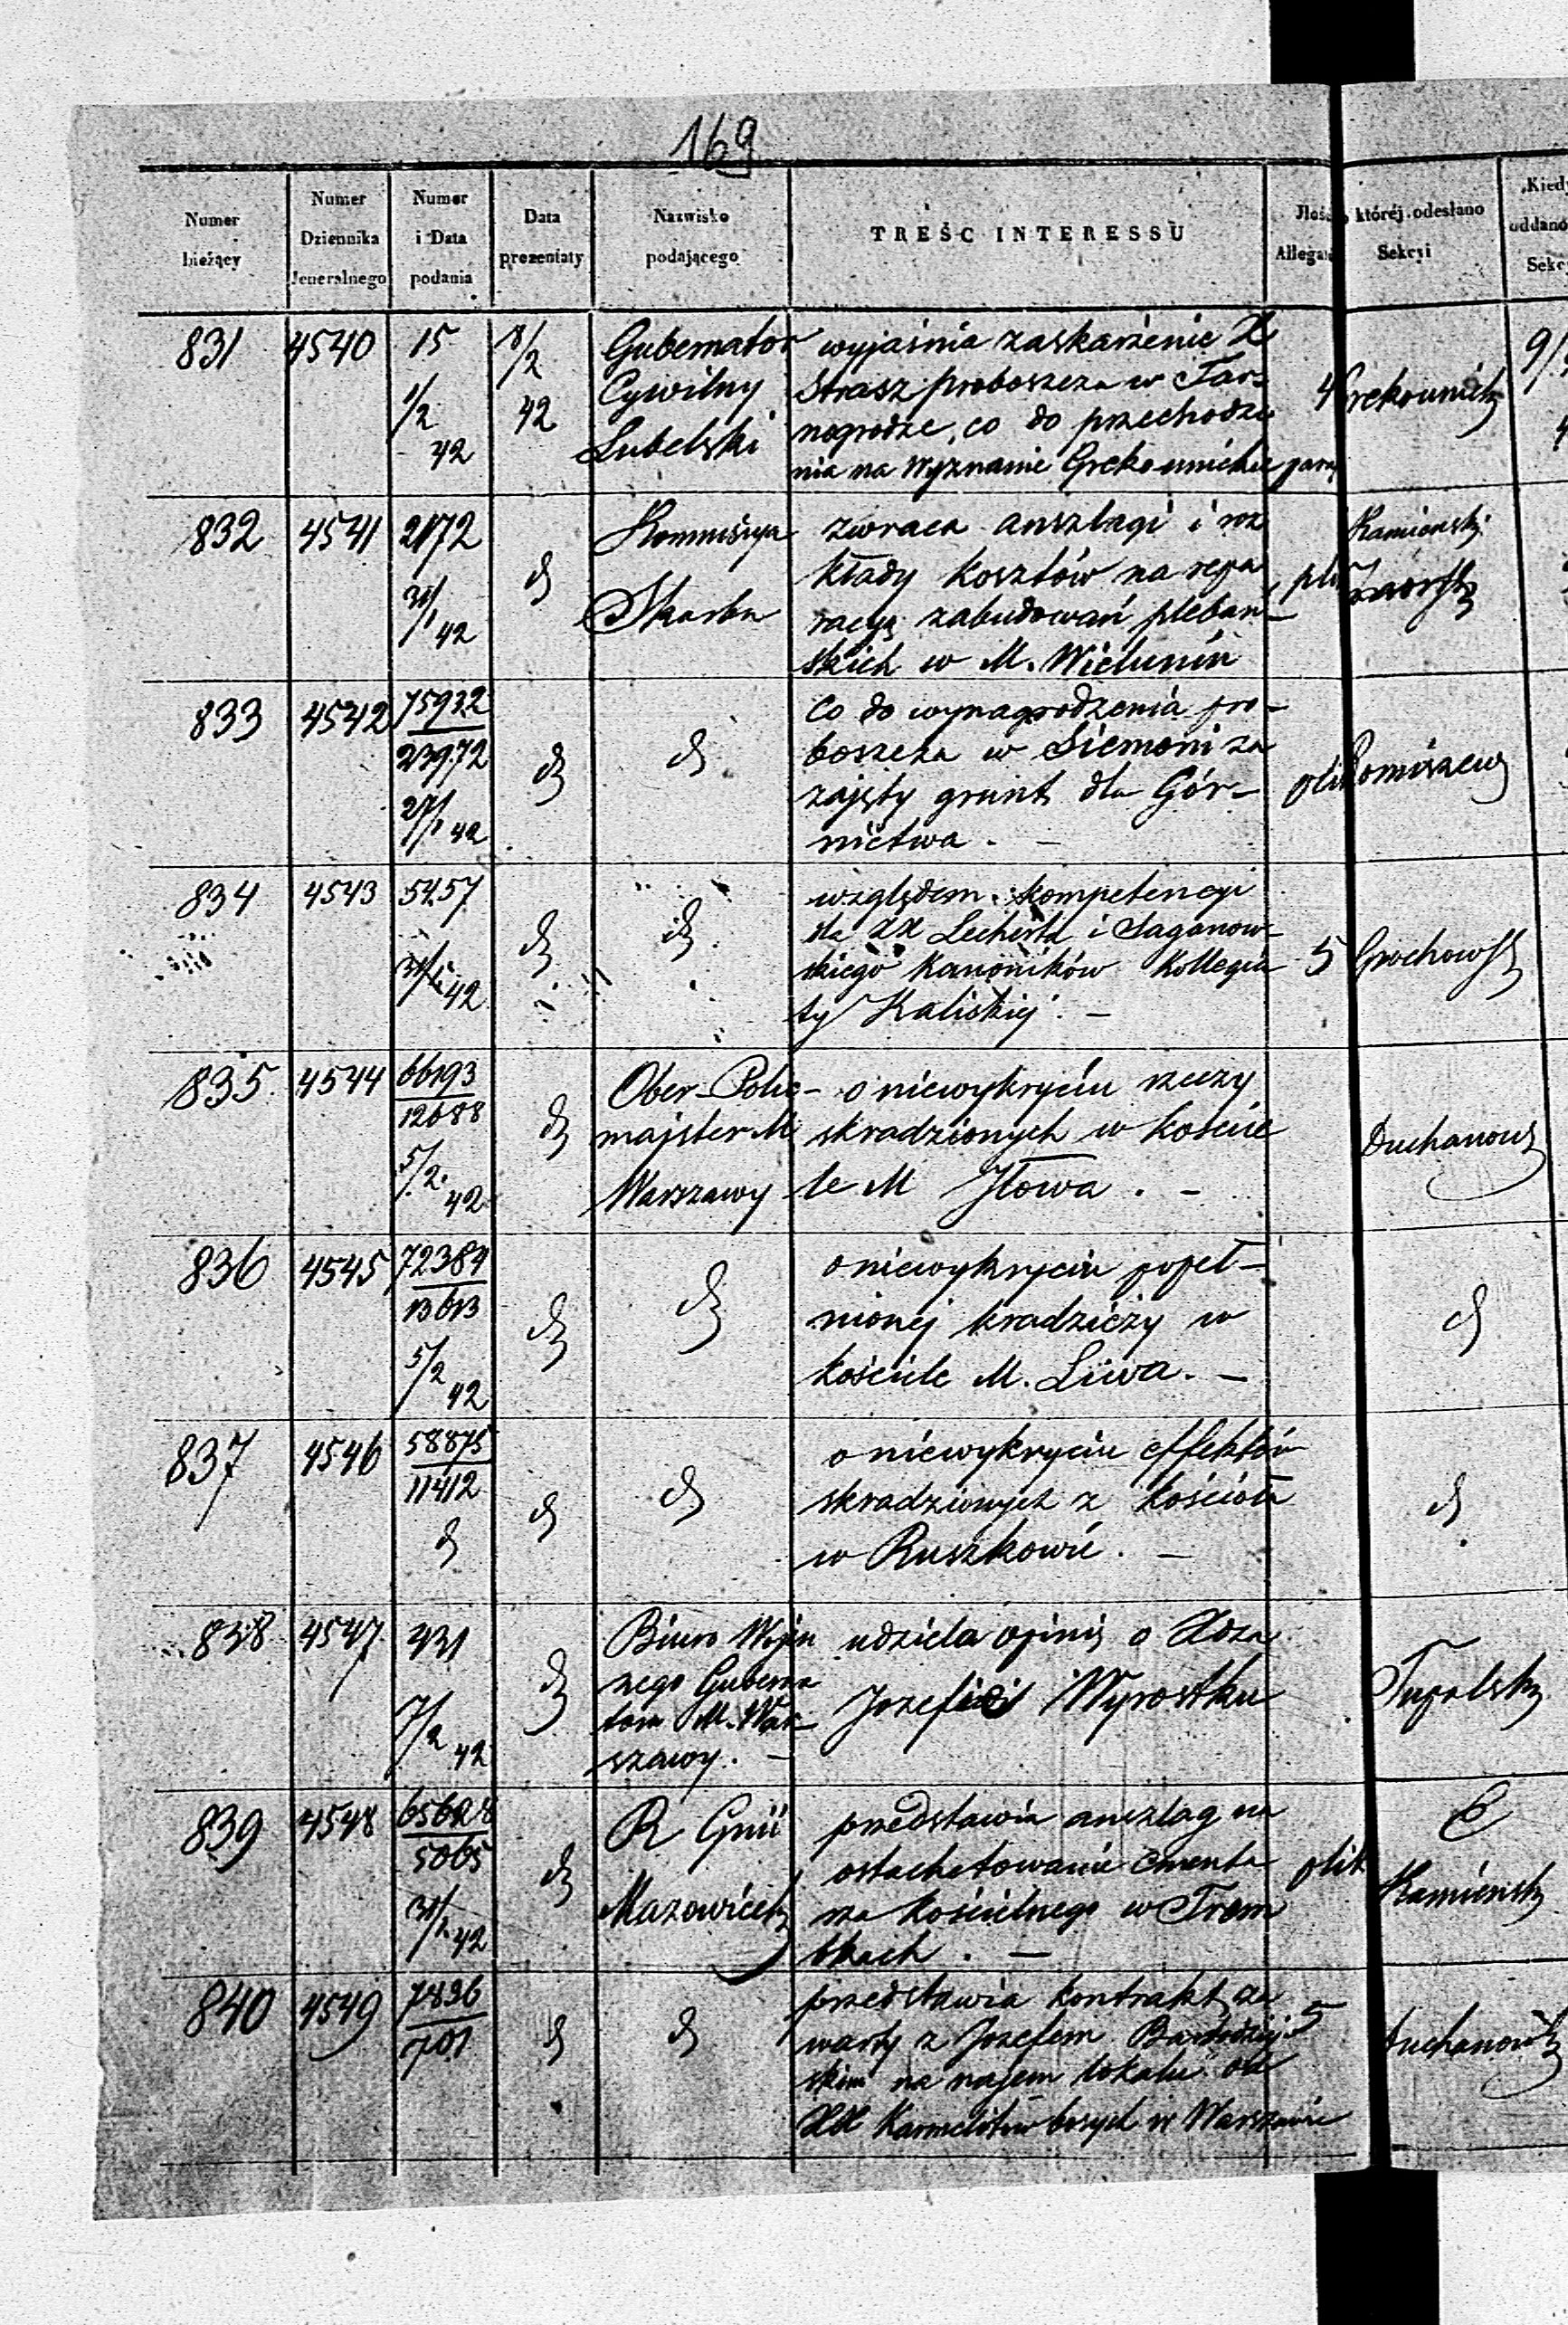 169
Numer bieżący
Numer Dziennika Jeneralnego
Numer i Data podania
Data prezentaty
Nazwisko podającego
TREŚC INTERESSU
Ilość Allegat
któréj odesłano Sekcyi
Kiedy oddano Sekc
831 4540 15 1/2 42 8/2 42
Gubernator
Cywilny
Lubelski
wyjaśnia zaskarżenie X
Strasz proboszcza w Tar-
nogrodze, co do przechodze
nia na wyznanie Grekounickie
4 Grekounick
9/
832 4541 2172 31/1 42 d
Kommissya
Skarbu
zwraca anszlagi i roz
kłady kosztów na repa
racyą zabudowań plebań-
skich w M. Wieluniu
plik
Kamieński
833 4542 75932 23972 27/1 42 d
d
Co do wynagrodzenia pro-
boszcza w Siemoni za
zajęty grunt dla Gór-
nictwa. -
plik
834 4543 5457 31/1 42 d
d
względem kompetencyi
dla XX Lecherta i Saganow-
skiego Kanoników Kollegia
ty Kaliskiej. -
5 Grochows
835 4544 66193 12688 5/2 42 d
Ober-Polic-
majster M
Warszawy
o niewykryciu rzeczy
skradzionych w koście
le M Iłowa. -
Duchanows
836 4545 72384 13613 5/2 42 d
d
o niewykryciu popeł-
nionej kradzieży w
kościele M. Liwa. -
d
837 4546 58875 11412 d d
d
o niewykryciu effektów
skradzionych z kościoła
w Ruszkowie. -
d
838 4547 431 7/2 42 d
Biuro Wojen
nego Guberna
tora M. War-
szawy. -
udziela opinię o Xdza
Jozefie Wyrostku
Tupalsk
839 4548 65628 5065 31/1 42 d
R Gnii
Mazowieck
przedstawia anszlag na
ostachetowanie cmenta
rza kościelnego w Trem
bkach. -
plik
Kamieńsk
840 4549 7836 701 d
d
przedstawia kontrakt za
warty z Jozefem
skim na najem lokalu od
XX Karmelitów bosych w Warszawie
5
Duchanow